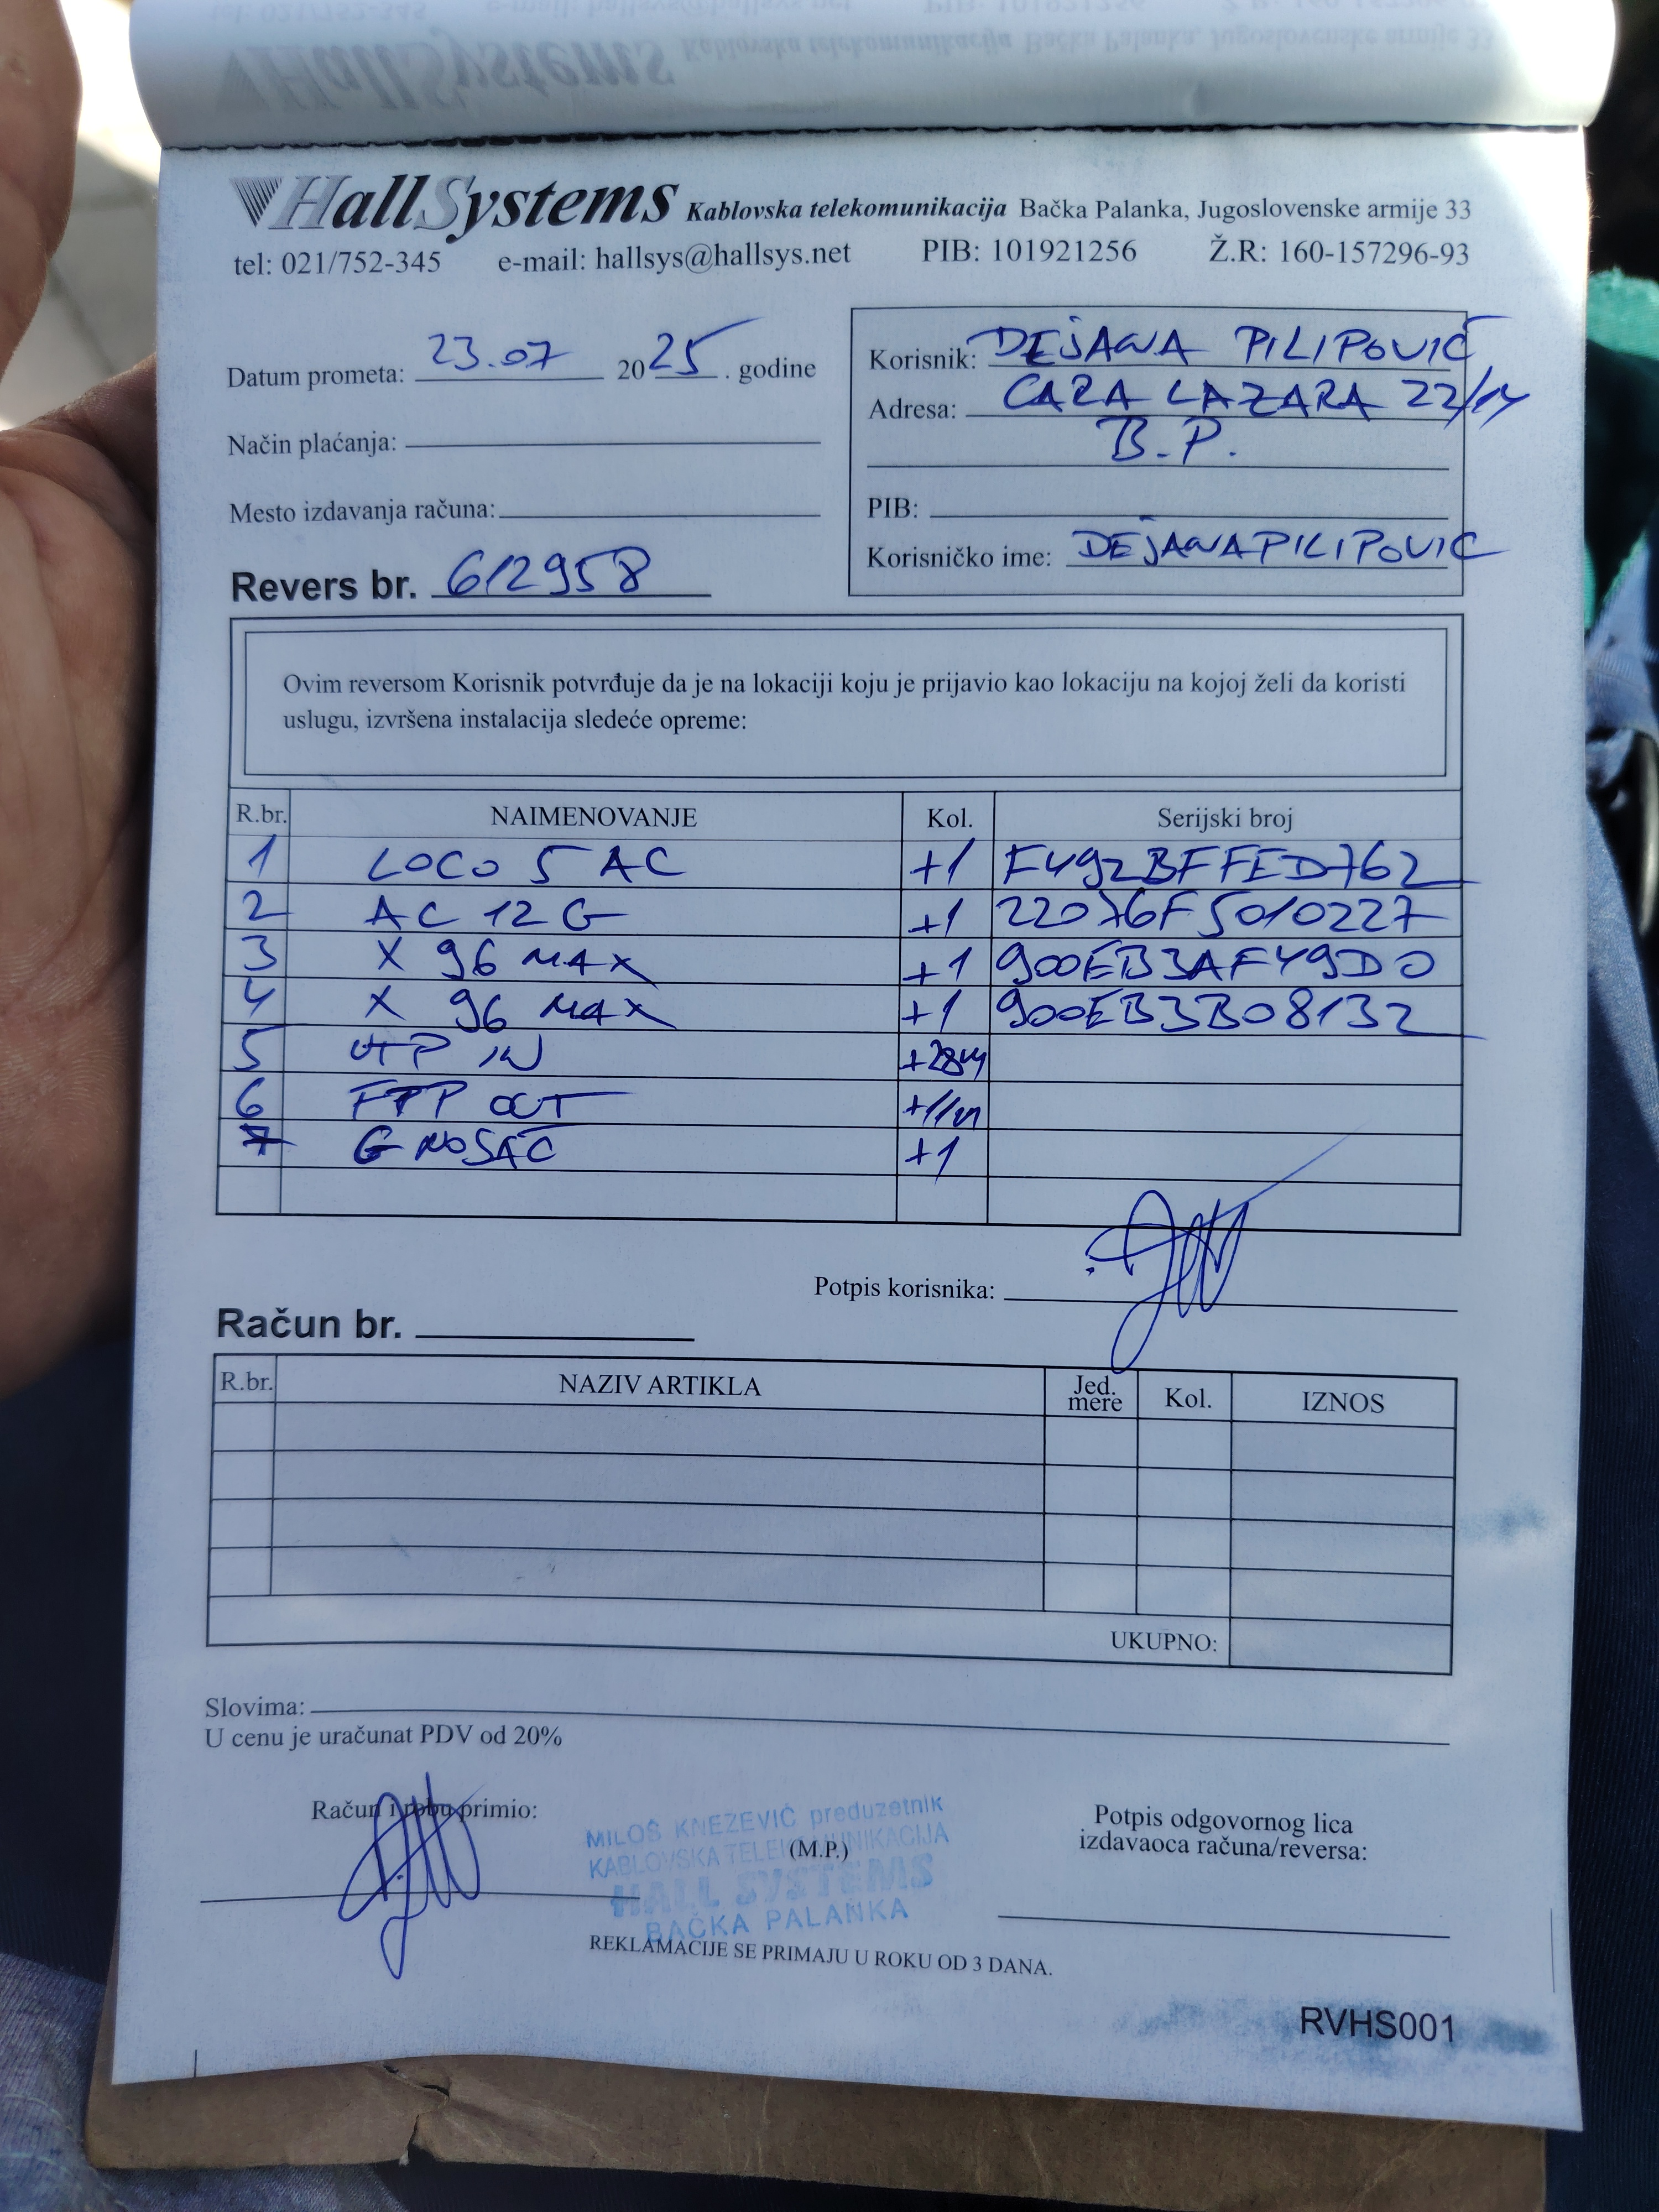 HallSystems Kablovska telekomunikacija Bačka Palanka, Jugoslovenske armije 33
tel: 021/752-345 e-mail: hallsys@hallsys.net PIB: 101921256 Ž.R: 160-157296-93
Datum prometa: 23.07 2025. godine
Način plaćanja:
Mesto izdavanja računa:
Revers br. 612958
Korisnik: DEJANA PILIPOVIĆ
Adresa: CARA LAZARA 22/14
B.P.
PIB:
Korisničko ime: DEJANAPILIPOVIC
Ovim reversom Korisnik potvrđuje da je na lokaciji koju je prijavio kao lokaciju na kojoj želi da koristi
uslugu, izvršena instalacija sledeće opreme:
R.br. NAIMENOVANJE Kol. Serijski broj
1 LOCO 5 AC +1 F492BFFED762
2 AC 12 G +1 22076F5010227
3 X 96 MAX +1 900EB3AF49D0
4 X 96 MAX +1 900EB3B08132
5 UTP IN +28m
6 FTP OUT +11m
7 G NOSAČ +1
Potpis korisnika:
Račun br.
R.br. NAZIV ARTIKLA Jed. mere Kol. IZNOS
UKUPNO:
Slovima:
U cenu je uračunat PDV od 20%
Račun i robu primio:
MILOŠ KNEŽEVIĆ preduzetnik
KABLOVSKA TELEKOMUNIKACIJA
HALL SYSTEMS
BAČKA PALANKA
(M.P.)
Potpis odgovornog lica
izdavaoca računa/reversa:
REKLAMACIJE SE PRIMAJU U ROKU OD 3 DANA.
RVHS001